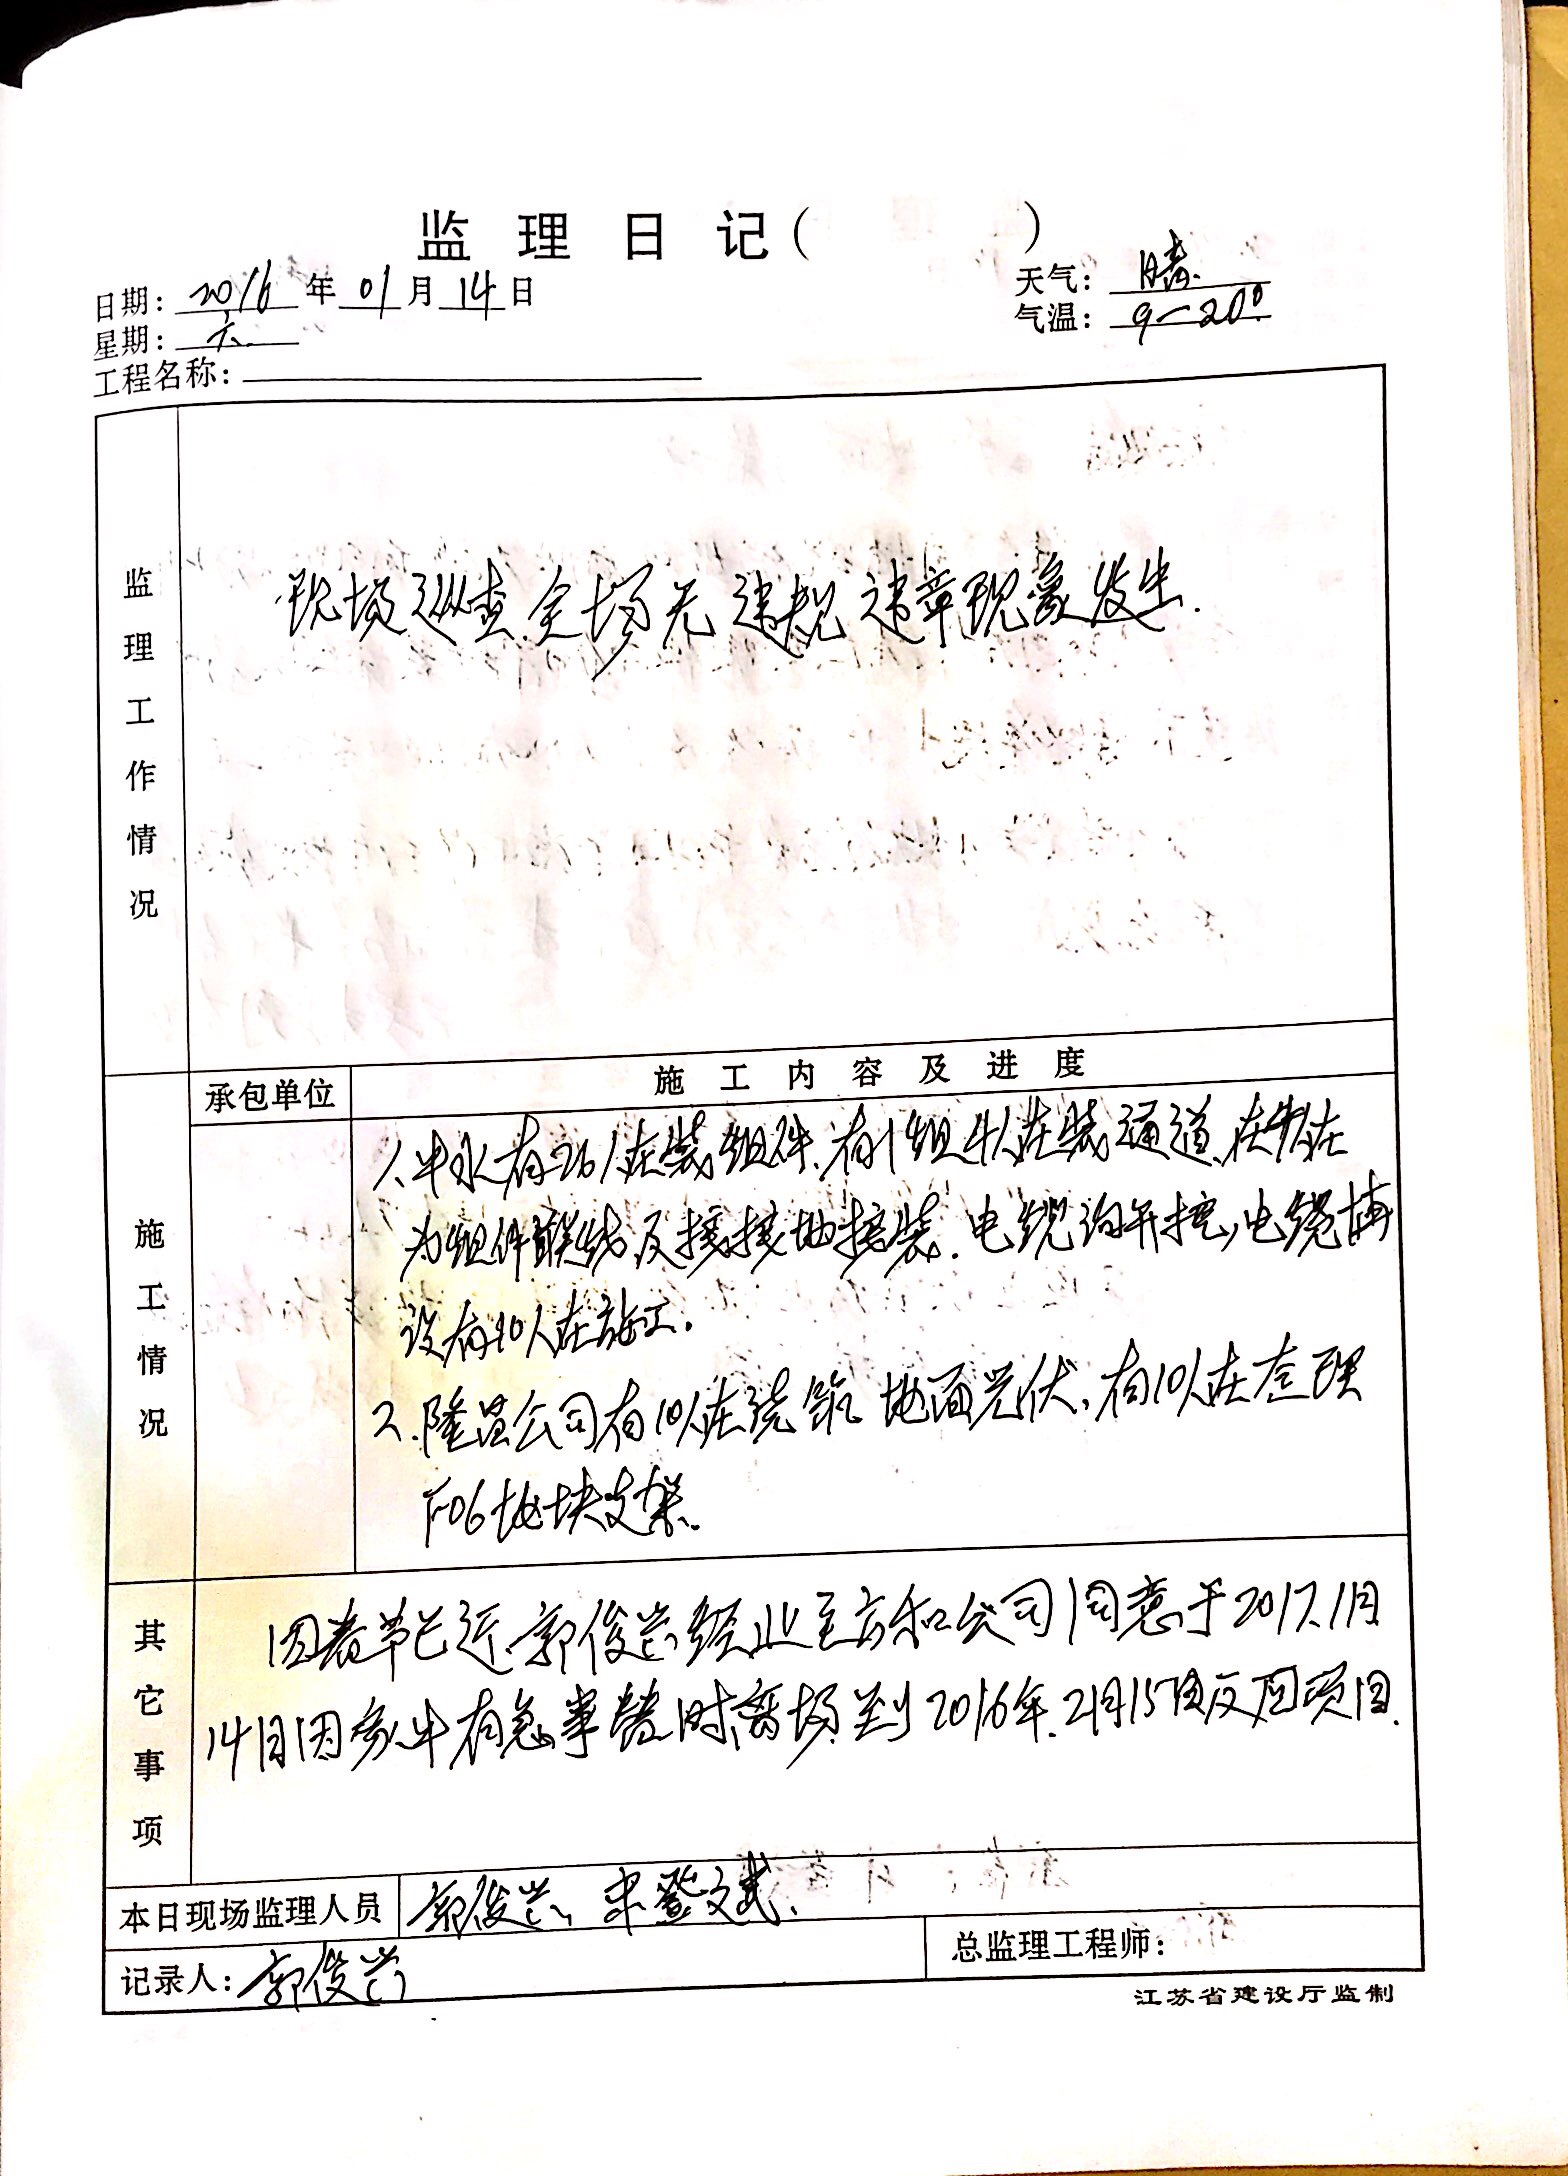 监理日记( )
日期: 2016 年 01 月 14 日 天气: 晴.
星期: 六. 气温: 9-20°.
工程名称:
监理工作情况
现场巡查.全场无违规违章现象发生.
承包单位 施工内容及进度
施工情况
1、中水有26人在装组件、有1组4人在装通道、在
为组件联线及接地、电缆沟开挖、电缆
设有10人在施工.
2、隆昌公司有10人在浇筑地面光伏、有10人在
F06地块支架.
其它事项
因春节已近.郭俊兴经业主方和公司同意于2017.1月
14日因家中有急事暂时离场.到2016年.2月15日返回项目.
本日现场监理人员 郭俊兴、宋登武.
记录人: 郭俊兴 总监理工程师:
江苏省建设厅监制